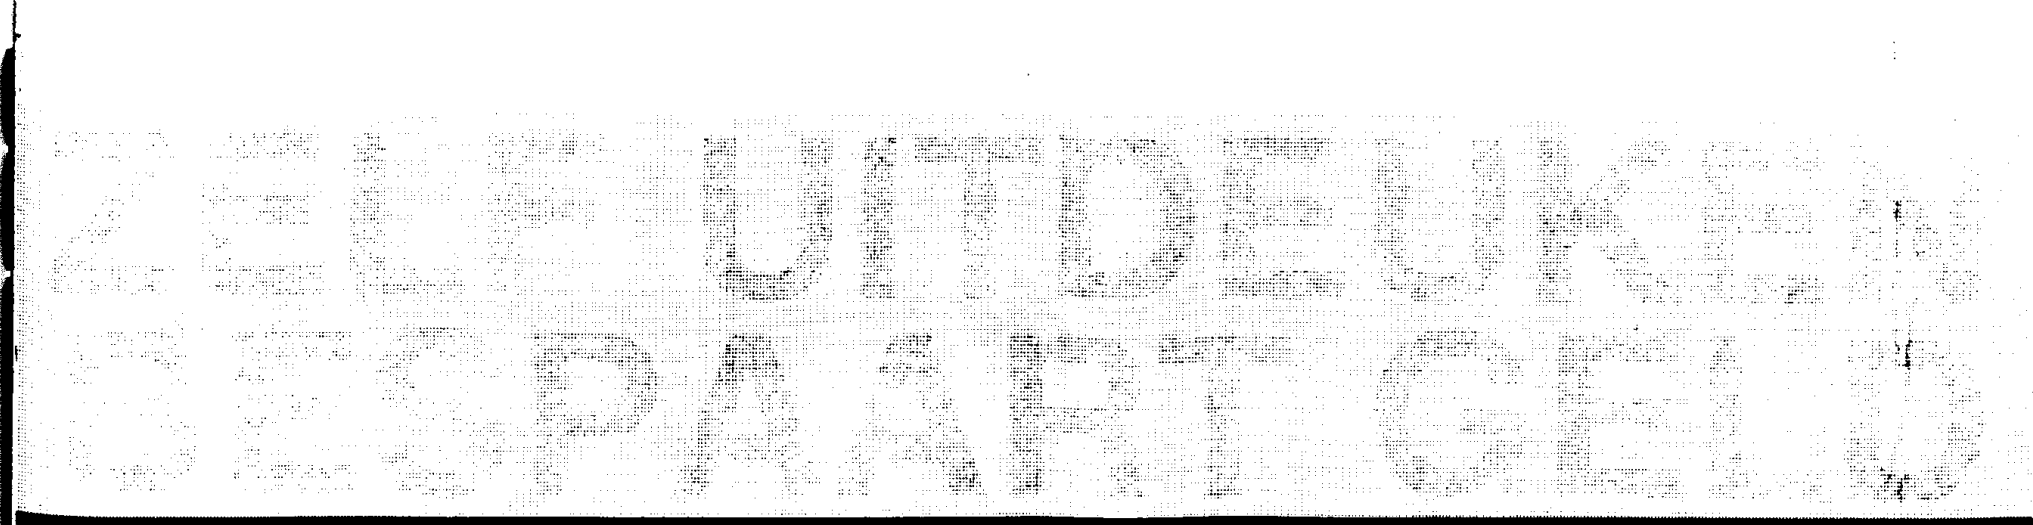 ZELF UITDEUKEN
BESPAART GELD